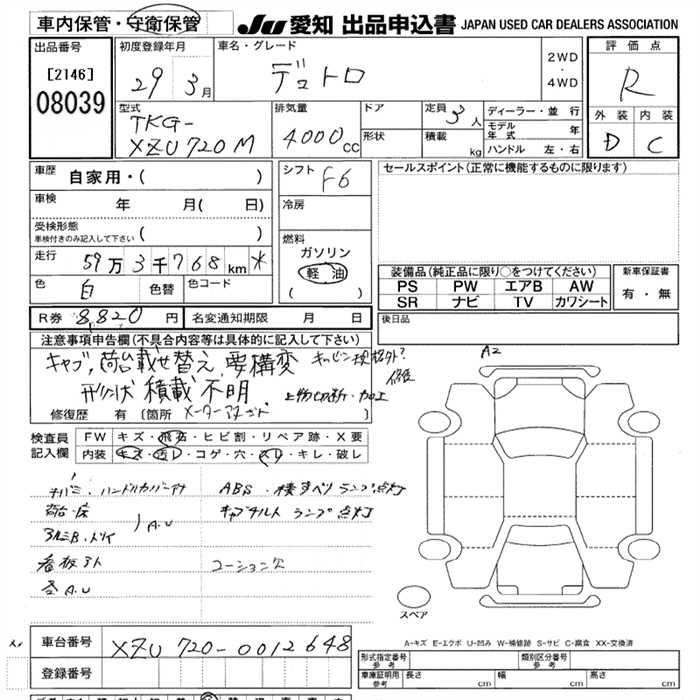 車内保管・守衛保管 JU 愛知 出品申込書 JAPAN USED CAR DEALERS ASSOCIATION
出品番号
[2146]
08039
初度登録年月
29 3月
車名・グレード
デュトロ
2WD
・
4WD
評価点
R
外装 内装
D C
型式
TKG-
XZU720M
排気量
4000cc
ドア
形状
定員 3人
積載 kg
ディーラー・並行
モデル年式 年
ハンドル 左・右
車歴
自家用・( )
車検
年 月( 日)
受検形態
車検付きのみ記入して下さい ( )
走行
59万3千768km
色
白
色替
色コード
シフト F6
冷房
燃料
ガソリン
軽油
( )
セールスポイント(正常に機能するものに限ります)
装備品(純正品に限り○をつけてください)
PS PW エアB AW
SR ナビ TV カワシート
新車保証書
有・無
後日品
R券 8,820円
名変通知期限 月 日
注意事項申告欄(不具合内容等は具体的に記入して下さい)
キャブ,荷台載せ替え,要構変
形状 積載 不明.
修復歴 有 (箇所
検査員
記入欄
FW キズ・飛石・ヒビ割・リペア跡・X要
内装 キズ・汚レ・コゲ・穴・スレ・キレ・破レ
ABS・横すべりランプ点灯
キャブチルト ランプ点灯
荷台・床
A.U
コーション欠
A2
スペア
A-キズ E-エクボ U-凹み W-補修跡 S-サビ C-腐食 XX-交換済
車台番号
XZU720-0012648
登録番号
形式指定番号
参考
類別区分番号
参考
車庫証明用
参考
長さ cm
幅 cm
高さ cm